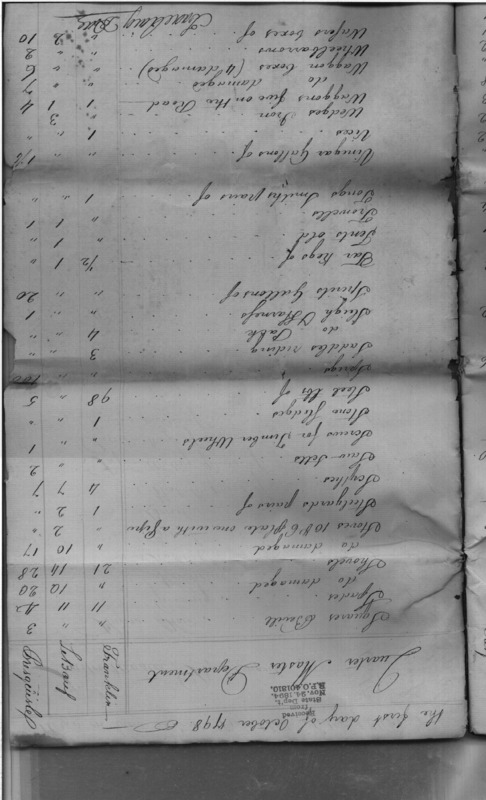 the first day of October 1798
Received
from
State Dep't.
Nov. 24. 1894.
R.P.O. 401810.
Quarter Master Department
Franklin
LeBœuf
Presquisle
Squares Bevill " " 3
Spades 11 11 42
do damaged " 12 20
Shovels 21 14 28
do damaged " 10 17
Stoves 10 & 6 plate one with a pipe " 2 "
Steelyards pairs of 1 2 "
Scythes 4 7 7
Saw-Setts " " 2
Screws for Timber Wheels " " 1
Stone Sledges 1 " "
Steel lbs of 98 " 5
Springs " " 100
Saddles riding 3 " "
do Pack 4 " "
Sleigh & Harness " " 1
Spirits Gallons of " " 20
Tar Kegs of 1/2 1 "
Tents old " 1 "
Trowells " 1 1
Tongs Smiths pairs of 1 " "
Vinegar Gallons of " "
Vices 1 " "
Wedges Iron " 3 "
Waggons five on the Road 1 1 4
do damaged " " 7
Waggon boxes (4 damaged) " " 6
Wheelbarrows " " 2
Wafers boxes of " 2 10